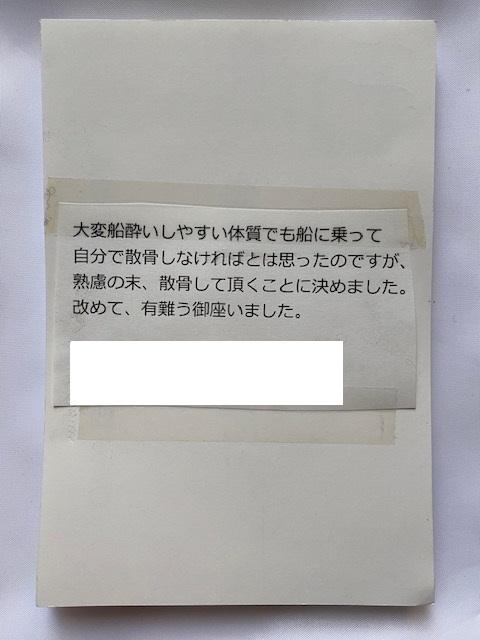 大変船酔いしやすい体質でも船に乗って
自分で散骨しなければとは思ったのですが、
熟慮の末、散骨して頂くことに決めました。
改めて、有難う御座いました。